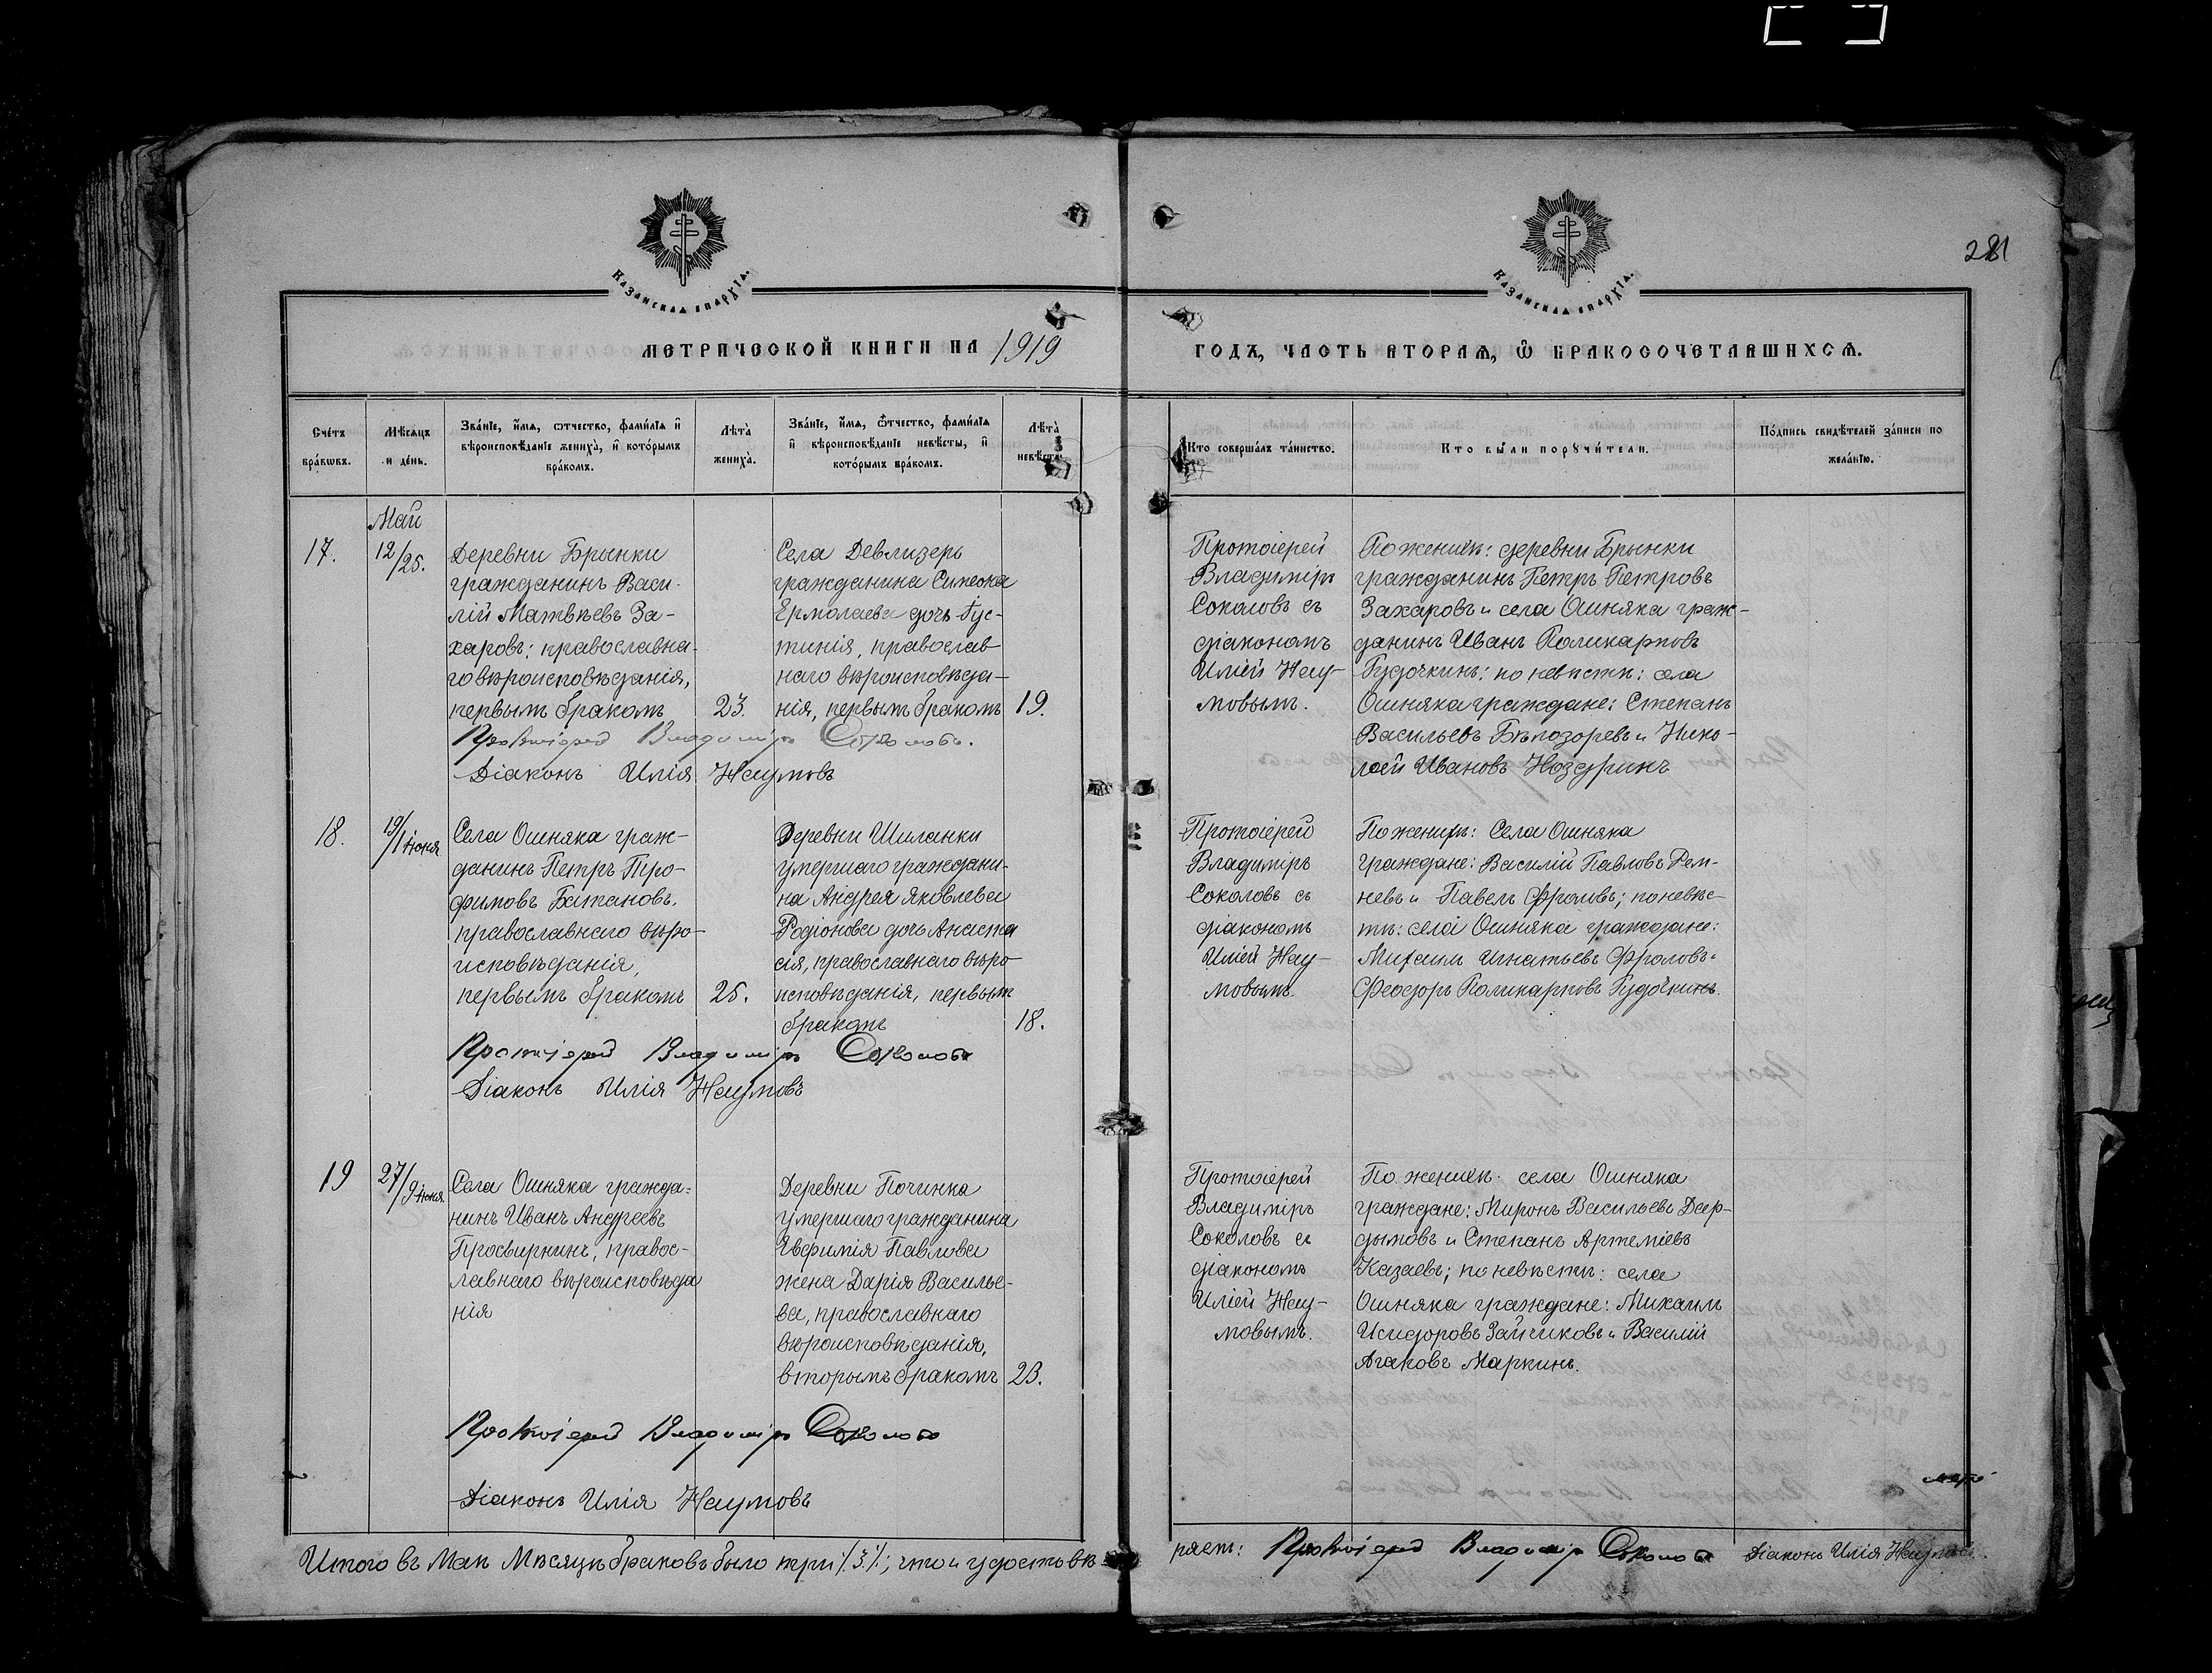 281
Казанская епархїа.
Казанская епархїа.
Метрической книги на 1919
годъ, часть вторая, ѡ бракосочетавшихся.
Счетъ браковъ.
Мѣсяцъ и день.
Званїе, имя, отчество, фамилїя и вѣроисповѣданїе жениха, и которымъ бракомъ.
Лѣта жениха.
Званїе, имя, отчество, фамилїя и вѣроисповѣданїе невѣсты, и которымъ бракомъ.
Лѣта невѣсты.
Кто совершалъ таинство.
Кто были поручители.
Подпись свидѣтелей записи по желанїю.
Май
17.
12/25.
Деревни Брынки
гражданинъ Васи-
лій Матвѣевъ За-
харовъ; православна-
го вѣроисповѣданія,
первымъ бракомъ
23.
Села Девлизерь
гражданина Симеона
Ермолаева дочь Іус-
тинія, православ
наго вѣроисповѣда-
нія, первымъ бракомъ
19.
Протоіерей Владиміръ Соколовъ.
Діаконъ Илія Наумовъ
Протоіерей
Владиміръ
Соколовъ съ
діакономъ
Иліей Нау-
мовымъ.
По женихѣ: деревни Брынки
гражданинъ Петръ Петровъ
Захаровъ и села Ошняка граж-
данинъ Иванъ Поликарповъ
Гудочкинъ; по невѣстѣ: села
Ошняка граждане: Степанъ
Васильевъ Бѣлозоревъ и Нико-
лай Ивановъ Ноздринъ
18.
19/1 іюня
Села Ошняка граж-
данинъ Петръ Тро-
фимовъ Батановъ.
православнаго вѣро-
исповѣданія,
первымъ бракомъ
25.
Деревни Шиланки
умершаго граждани-
на Андрея Яковлева
Родіонова дочь Анаста
сія, православнаго вѣро-
исповѣданія, первымъ
бракомъ
18.
Протоіерей Владиміръ Соколовъ
Діаконъ Илія Наумовъ
Протоіерей
Владиміръ
Соколовъ съ
діакономъ
Иліей Нау-
мовымъ.
По женихѣ: Села Ошняка
граждане: Василій Павловъ Рем-
невъ и Павелъ Фроловъ; по невѣс-
тѣ: села Ошняка граждане:
Михаилъ Игнатьевъ Фроловъ и
Феодоръ Поликарповъ Гудочкинъ.
19
27/9 іюня
Села Ошняка гражда-
нинъ Иванъ Андреевъ
Просвиркинъ, правос-
лавнаго вѣроисповѣда
нія
Деревни Починка
умершаго гражданина
Евфимія Павлова
жена Дарія Василье-
ва, православнаго
вѣроисповѣданія,
вторымъ бракомъ
23.
Протоіерей Владиміръ Соколовъ
Діаконъ Илія Наумовъ
Протоіерей
Владиміръ
Соколовъ съ
діакономъ
Иліей Нау-
мовымъ.
По женихѣ: села Ошняка
граждане: Миронъ Васильевъ Дар-
дымовъ и Степанъ Артеміевъ
Казаевъ; по невѣстѣ: села
Ошняка граждане: Михаилъ
Исидоровъ Зайчиковъ и Василій
Агаповъ Маркинъ.
Итого въ Маѣ Мѣсяцѣ браковъ было три /.3./.; что и удостовѣ-
ряемъ: Протоіерей Владиміръ Соколовъ Діаконъ Илія Наумовъ.